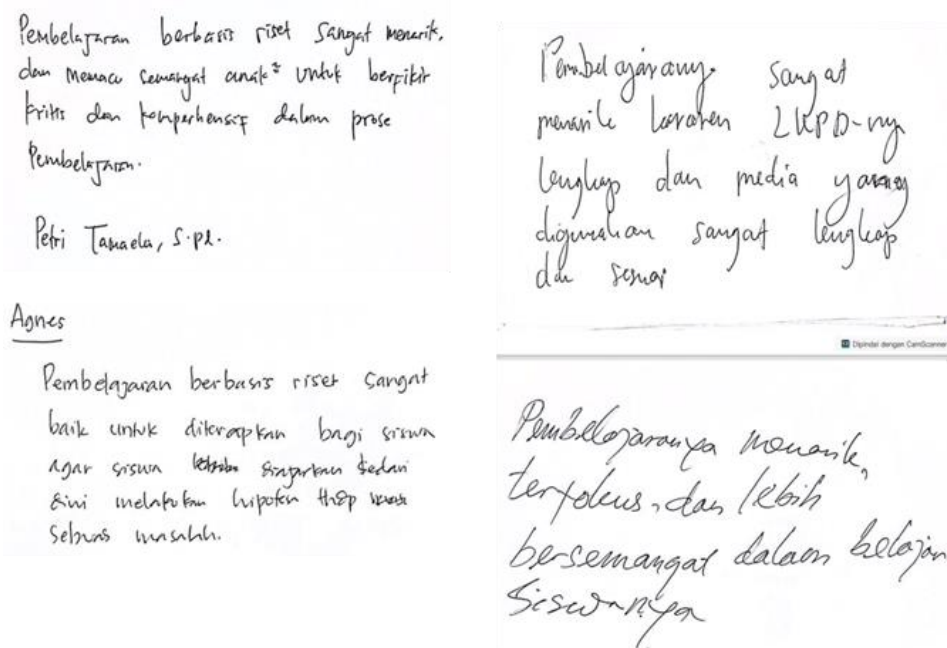 Pembelajaran berbasis riset sangat menarik,
dan memacu semangat anak² untuk berfikir
kritis dan komperhensif dalam prose
Pembelajaran.
Petri Tamaela, S.pd.
Agnes
Pembelajaran berbasis riset sangat
baik untuk diterapkan bagi siswa
agar siswa sedari
sini melakukan hipotesa thdp
sebuas masalah.
Pembelajarany sangat
menarik LKPD-ny
lengkap dan media yang
digunakan sangat lengkap
dan sesuai
Dipindai dengan CamScanner
Pembelajaranya menarik,
terfokus, dan lebih
bersemangat dalam belajar
siswanya